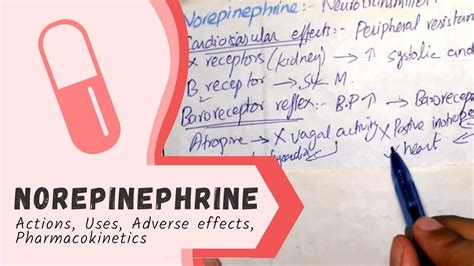 Norepinephrine:- Neurotransmitter
Cardiovascular effects:- Peripheral resistan
X receptors (kidney) → ↑ systolic and
B receptor → SKM.
Baroreceptor reflex:- B.P ↑ → Barorecep
Atropine → X vagal activity
X Positive inotrop
X heart
NOREPINEPHRINE
Actions, Uses, Adverse effects,
Pharmacokinetics